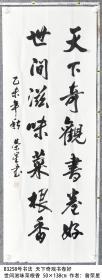 天下奇觀書卷好
世間滋味菜根香
乙未年許榮星書
83258号书法 天下奇观书卷好
世间滋味菜根香 50×138cm 作者:翁荣星